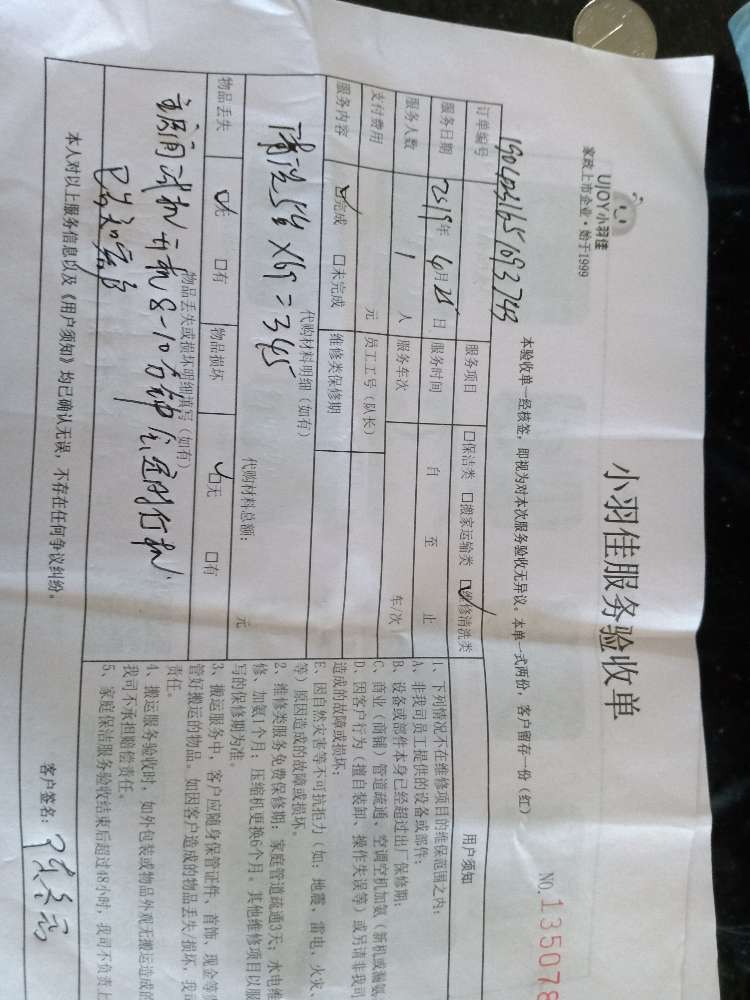 UJOY小羽佳
家政上市企业·始于1999
小羽佳服务验收单
NO.135078
本验收单一经核签，即视为对本次服务验收无异议。本单一式两份，客户留存一份（红）
订单编号
服务项目 □保洁类 □搬家运输类 □维修清洗类
服务日期 2019年4月25日 服务时间 自 至 止
服务人数 1 人 服务车次 车/次
支付费用 元 员工工号（队长）
服务内容 □完成 □未完成 维修类保修期
代购材料明细（如有）
清洗5台×69=345
代购材料总额： 元
物品丢失 □无 □有 物品损坏 □无 □有
物品丢失或损坏明细填写（如有）
试机 开机8-10分钟
已告知客户
本人对以上服务信息以及《用户须知》均已确认无误，不存在任何争议纠纷。
用户须知
1、下列情况不在维修项目的维保范围之内：
A、非我司员工提供的设备或部件；
B、设备或部件本身已经超过出厂保修期；
C、商业（商铺）管道疏通、空调空机加氨（新机或漏氨
D、因客户行为（擅自装卸、操作失误等）或另请非我司
造成的故障或损坏；
E、因自然灾害等不可抗拒力（如：地震、雷电、火灾、
等）原因造成的故障或损坏。
2、维修类服务免费保修期：家庭管道疏通3天；水电维
修、加氨1个月；压缩机更换6个月。其他维修项目以服
写的保修期为准。
3、搬运服务中，客户应随身保管证件、首饰、现金等贵
管好搬运的物品。如因客户造成的物品丢失/损坏，我司
责任。
4、搬运服务验收时，如外包装或物品外观无搬运造成的
我司不承担赔偿责任。
5、家庭保洁服务验收结束后超过48小时，我司不负责上
客户签名：